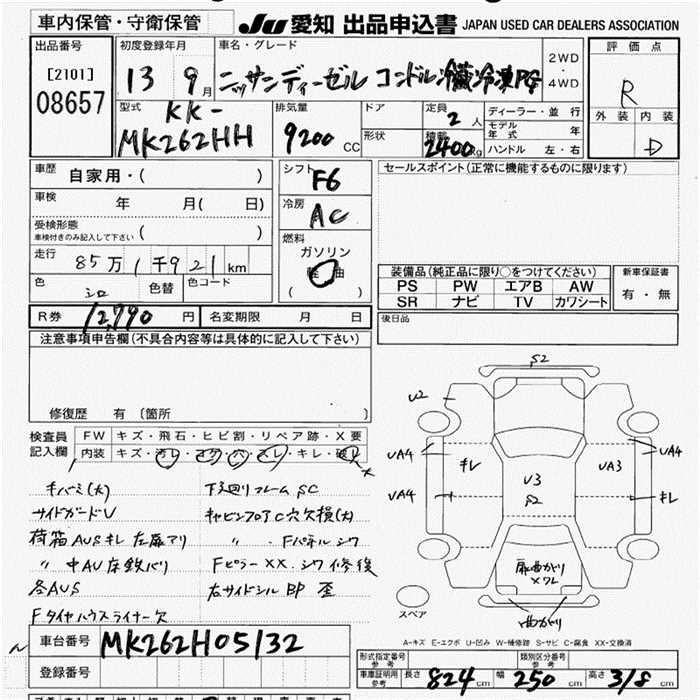 車内保管・守衛保管
JU 愛知 出品申込書 JAPAN USED CAR DEALERS ASSOCIATION
出品番号
[2101]
08657
初度登録年月
13 9月
車名・グレード
ニッサンディーゼル コンドル冷蔵冷凍PG
2WD・4WD
評価点
R
外装 内装
D
型式
KK-
MK262HH
排気量
9200 CC
ドア
形状
定員
2人
積載
2400kg
ディーラー・並行
モデル年式 年
ハンドル 左・右
車歴
自家用・( )
車検
年 月( 日)
受検形態
車検付きのみ記入して下さい ( )
走行
85万1千921km
色
シロ
色替
色コード
シフト
F6
冷房
AC
燃料
ガソリン
軽油
( )
セールスポイント(正常に機能するものに限ります)
装備品(純正品に限り○をつけてください)
PS PW エアB AW
SR ナビ TV カワシート
新車保証書
有・無
R券 12,790円
名変期限 月 日
後日品
注意事項申告欄(不具合内容等は具体的に記入して下さい)
修復歴 有 〔箇所 〕
検査員記入欄
FW キズ・飛石・ヒビ割・リペア跡・X要
内装 キズ・汚レ・コゲ・ハ・スレ・キレ・破レ
キバミ(大)
サイドガードU
荷箱AUSキレ 左扉アリ
〃 中AU床鉄バリ
各AUS
Fタイヤハウスライナー欠
下廻リフレームSC
キャビンフロアC穴欠損(大)
〃 Fパネルシワ
FピラーXX.シワ修復
右サイドシルBP 歪
S2
U2
UA4
キレ
UA4
U3
S2
UA3
UA4
キレ
扉曲がり
Xワレ
曲がり
スペア
A-キズ E-エクボ U-凹み W-補修跡 S-サビ C-腐食 XX-交換済
車台番号
MK262H05132
登録番号
形式指定番号 参考
類別区分番号 参考
車庫証明用 参考
長さ 824cm 幅 250cm 高さ 318cm